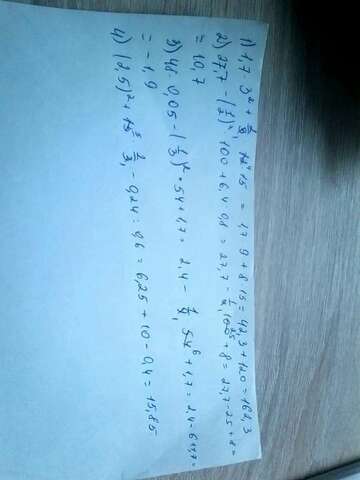 1) 1,7 · 3² + 2/3 · 12⁴ 15 = 1,7 9 + 8 15 = 42,3 + 120 = 162,3
2) 27,7 - (1/2)² · 100 + 6,4 · 0,8 = 27,7 - 1/4 · 100²⁵ + 8 = 27,7 - 25 + 8 =
= 10,7
3) 48 · 0,05 - (1/3)² · 54 + 1,7 = 2,4 - 1/9 · 54⁶ + 1,7 = 2,4 - 6 + 1,7 =
= -1,9
4) (2,5)² + 15⁵ · 2/3 - 0,24 : 0,6 = 6,25 + 10 - 0,4 = 15,85